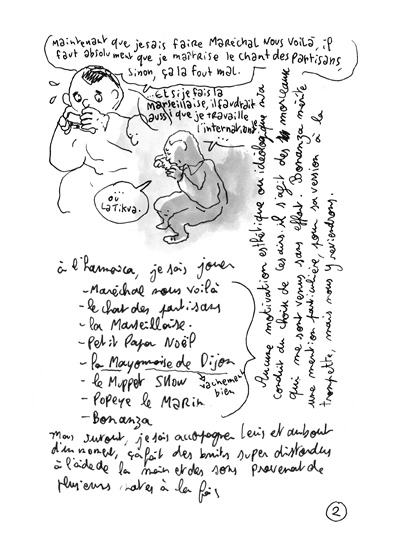 Maintenant que je sais faire Maréchal nous voilà, il
faut absolument que je maîtrise le chant des partisans,
sinon, ça la fout mal.
...Et si je fais la
marseillaise, il faudrait
aussi que je travaille
l'internationale
... ou
LaTikva.
Aucune motivation esthétique ou idéologique n'a
conduit du choix de ces airs. il s'agit des morceaux
qui me sont venus sans effort. Bonanza mérite
une mention particulière, pour sa version à la
trompette, mais nous y reviendrons.
à l'harmonica, je sais jouer
- Maréchal nous voilà
- le chat des partisans
- la Marseillaise.
- Petit Papa Noël
- la Mayonnaise de Dijon
- le Muppet Show
vachement
bien
- Popeye le Marin
- Bonanza
Mais surtout, je sais accompagner Lewis et au bout
d'un moment, ça fait des bruits super distordus
à l'aide de la main et des sons provenant de
plusieurs notes à la fois
2